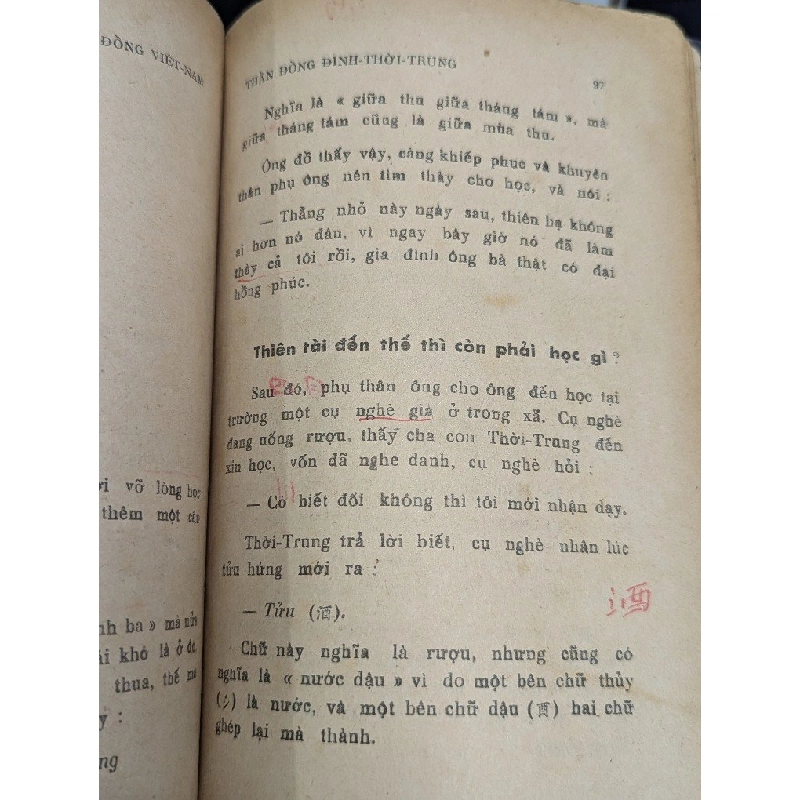 ĐỒNG VIỆT-NAM
vỡ lòng học
thêm một
nh ba » mà
khó là ở
thua, thế mà
THẦN ĐỒNG ĐÌNH-THỜI-TRUNG
97
Nghĩa là « giữa thu giữa tháng tám », mà
giữa tháng tám cũng là giữa mùa thu.
Ông đồ thấy vậy, càng khiếp phục và khuyên
thân phụ ông nên tìm thày cho học, và nói :
— Thằng nhỏ này ngày sau, thiên hạ không
ai hơn nó đân, vì ngay bây giờ nó đã làm
thày cả tôi rồi, gia đình ông bà thật có đại
hồng phúc.
Thiên tài đến thế thì còn phải học gì ?
Sau đó, phụ thân ông cho ông đến học tại
trường một cụ nghè già ở trong xã. Cụ nghè
đang uống rượu, thấy cha con Thời-Trung đến
xin học, vốn đã nghe danh, cụ nghè hỏi :
— Có biết đối không thì tôi mới nhận dạy.
Thời-Trung trả lời biết, cụ nghè nhân lúc
tửu hứng mới ra :
— Tửu (酒).
酒
Chữ này nghĩa là rượu, nhưng cũng có
nghĩa là « nước dậu » vì do một bên chữ thủy
(氵) là nước, và một bên chữ dậu (酉) hai chữ
ghép lại mà thành.